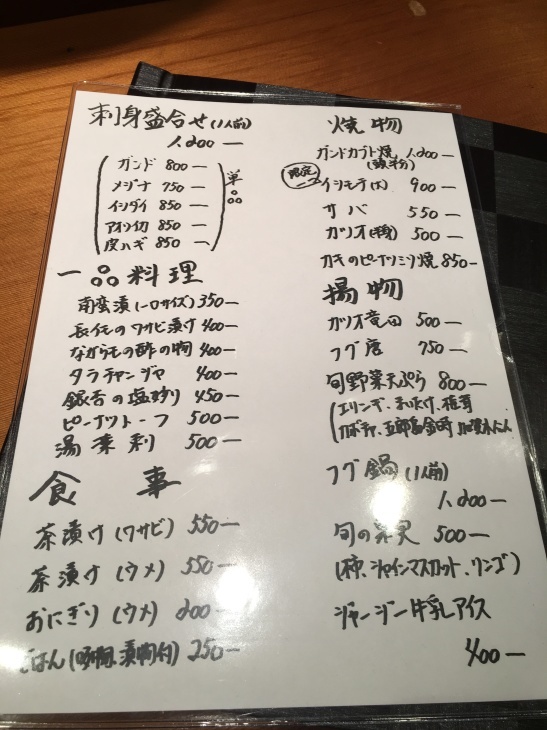 刺身盛合せ(1人前)
1,200ー
ガンド 800ー
メジナ 750ー
イシダイ 850ー
アオリイカ 850ー
皮ハギ 850ー
単品
一品料理
南蛮漬(一口サイズ) 350ー
長イモのワサビ漬け 400ー
ながらもの酢の物 400ー
タラチャンジャ 400ー
銀杏の塩炒り 450ー
ピーナツトーフ 500ー
湯葉刺 500ー
食事
茶漬け(ワサビ) 550ー
茶漬け(ウメ) 550ー
おにぎり(ウメ) 200ー
ごはん(味噌汁、漬物付) 250ー
焼物
ガンドカブト焼 1,200ー
(頭半分)
限定
イシモチ(大) 900ー
サバ 550ー
カツオ(半身) 500ー
カキのピーナツミソ焼 850ー
揚物
カツオ竜田 500ー
フグ唐 750ー
旬野菜天ぷら 800ー
(エリンギ、まいたけ、椎茸
カボチャ、五郎島金時、加賀れんこん
フグ鍋(1人前)
1,200ー
旬の果実 500ー
(柿、シャインマスカット、リンゴ)
ジャージー牛乳アイス
400ー